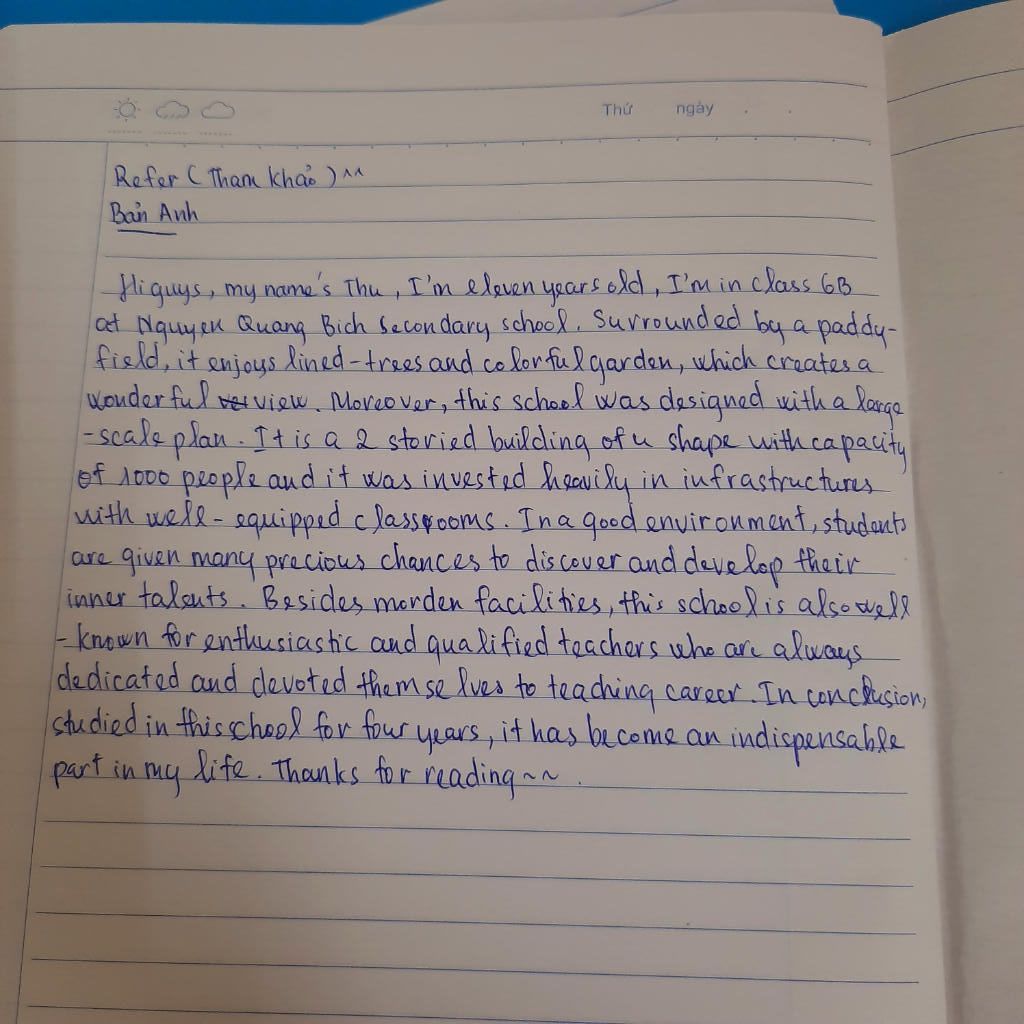 Thứ ngày
Refer (Tham khảo) ^^
Bản Anh
Hi guys, my name's Thu, I'm eleven years old, I'm in class 6B
at Nguyen Quang Bich Secondary school. Surrounded by a paddy-
field, it enjoys lined-trees and colorful garden, which creates a
wonderful view. Moreover, this school was designed with a large
-scale plan. It is a 2 storied building of u shape with capacity
of 1000 people and it was invested heavily in infrastructures
with well-equipped classrooms. In a good environment, students
are given many precious chances to discover and develop their
inner talents. Besides morden facilities, this school is also well
-known for enthusiastic and qualified teachers who are always
dedicated and devoted themselves to teaching career. In conclusion,
studied in this school for four years, it has become an indispensable
part in my life. Thanks for reading~~.